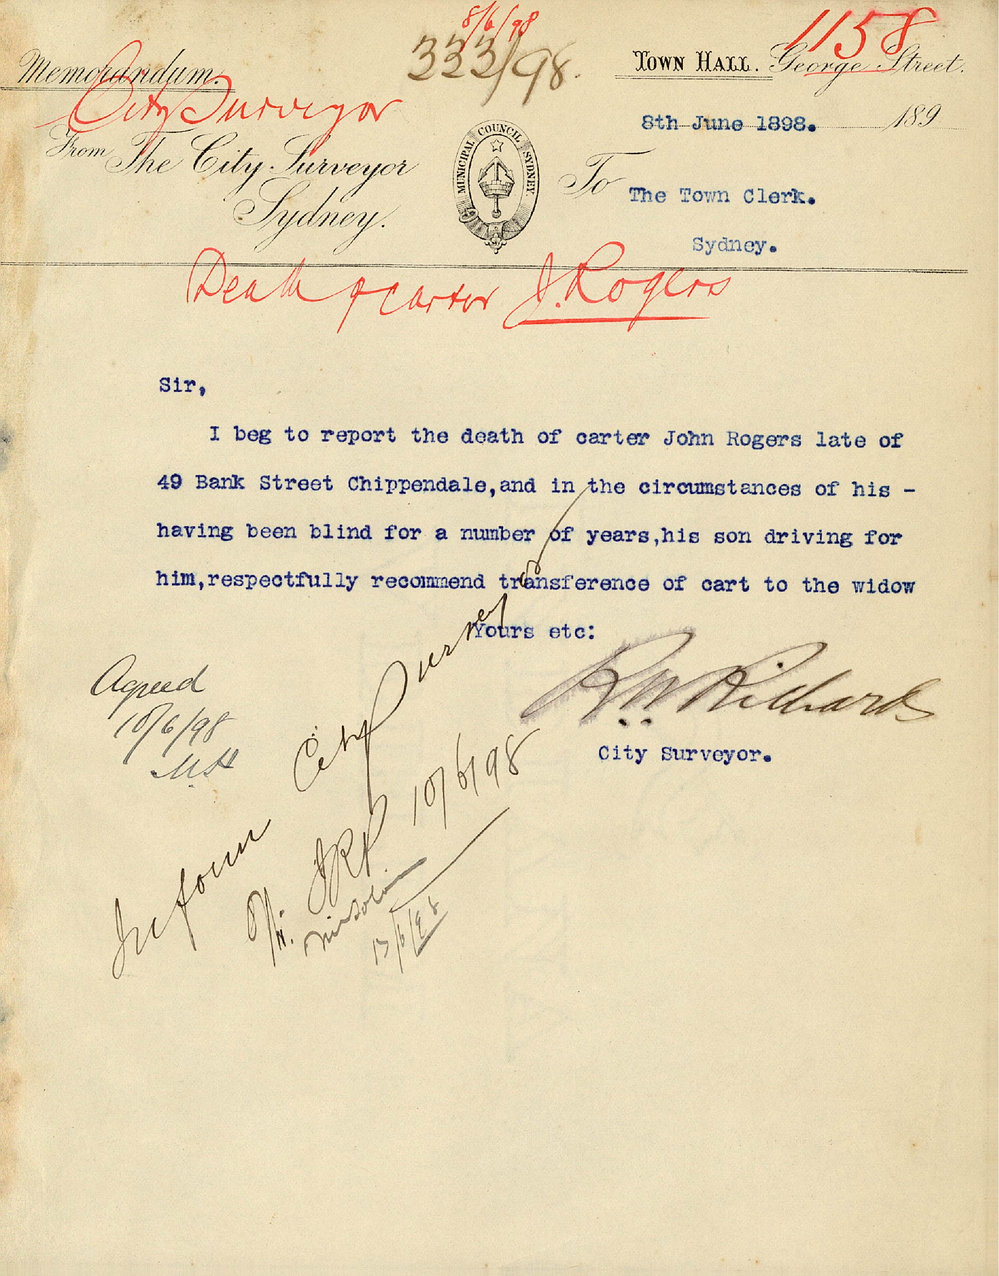 8/6/98
1158
333/98.
Memorandum.
TOWN HALL. George Street.
City Surveyor
8th June 1898. 189
From The City Surveyor
Sydney.
MUNICIPAL COUNCIL SYDNEY
To The Town Clerk.
Sydney.
Death of carter J. Rogers
Sir,
I beg to report the death of carter John Rogers late of
49 Bank Street Chippendale,and in the circumstances of his -
having been blind for a number of years,his son driving for
him,respectfully recommend transference of cart to the widow
Yours etc:
R.W. Richards
City Surveyor.
Agreed
10/6/98
Inform City Surveyor
10/6/98
13/6/98